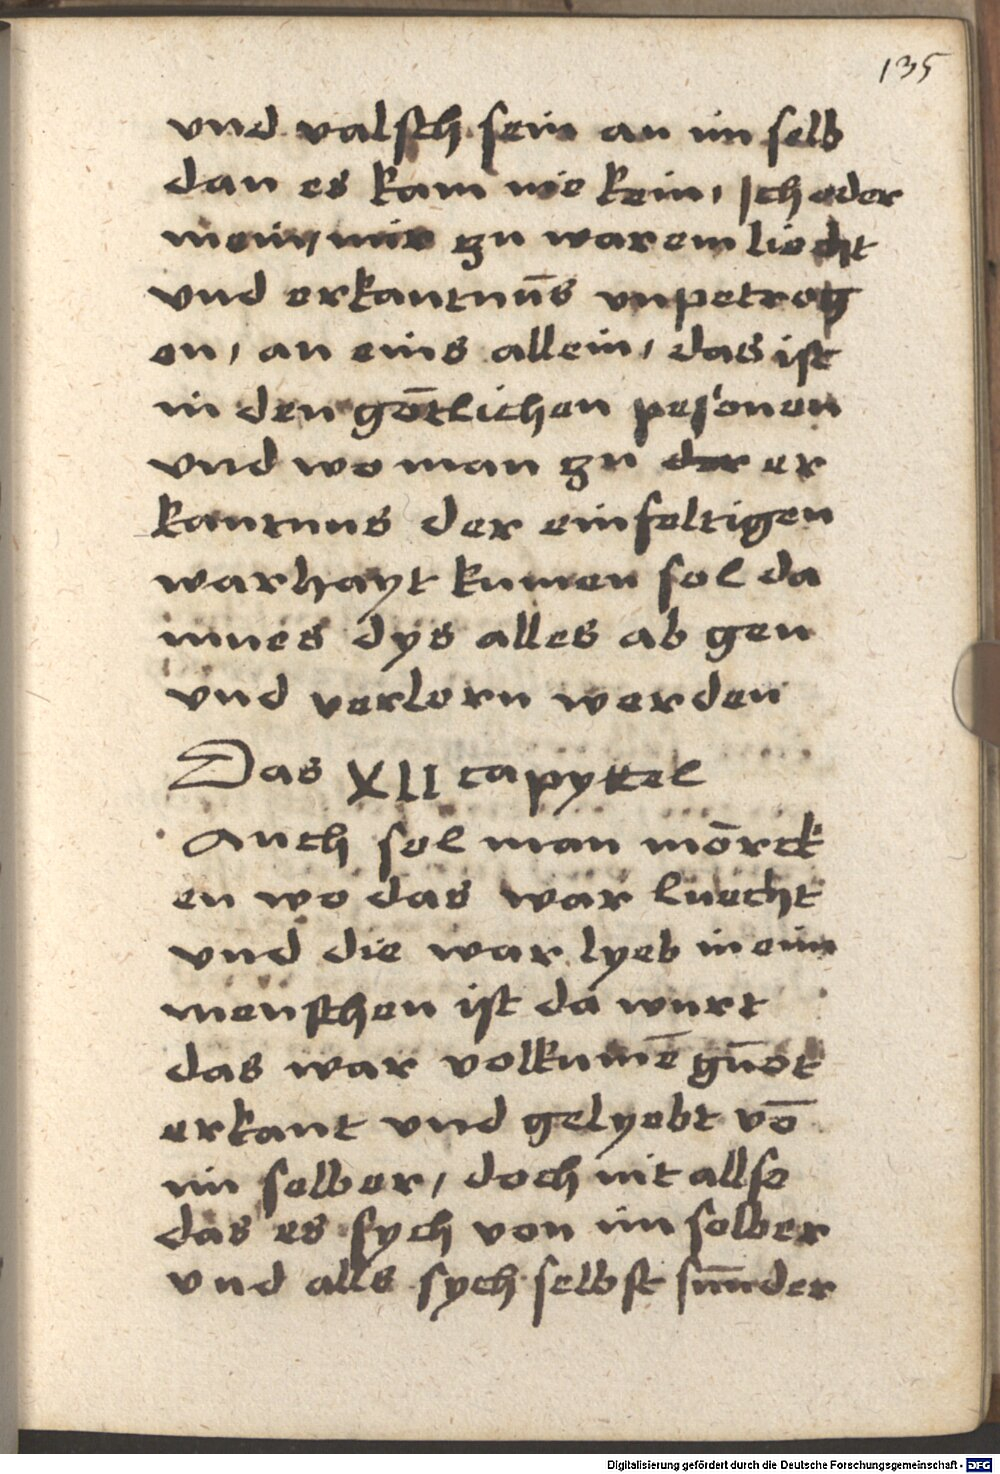 135
vnd valsch sein an im selb
dan es kam nie kein, Jch oder
mein, mir zu warem liecht
vnd erkantnūs vnpetrog
en, an eins allein, das ist
in den gōtlichen pesonen
vnd wo man zu der er
kantnus der einfeltigen
warhayt kumen sol da
mues dys alles ab gen
vnd verlorn werden
Das XLI capyttel
Auch sol man mōrck
en wo das war luecht
vnd die war lyeb in eim
menschen ist da wurt
das war volkumē guot
erkant vnd gelyebt vō
im selber, doch nit allse
das es sych von im selber
vnd alls sych selbst sūnder
Digitalisierung gefördert durch die Deutsche Forschungsgemeinschaft - DFG